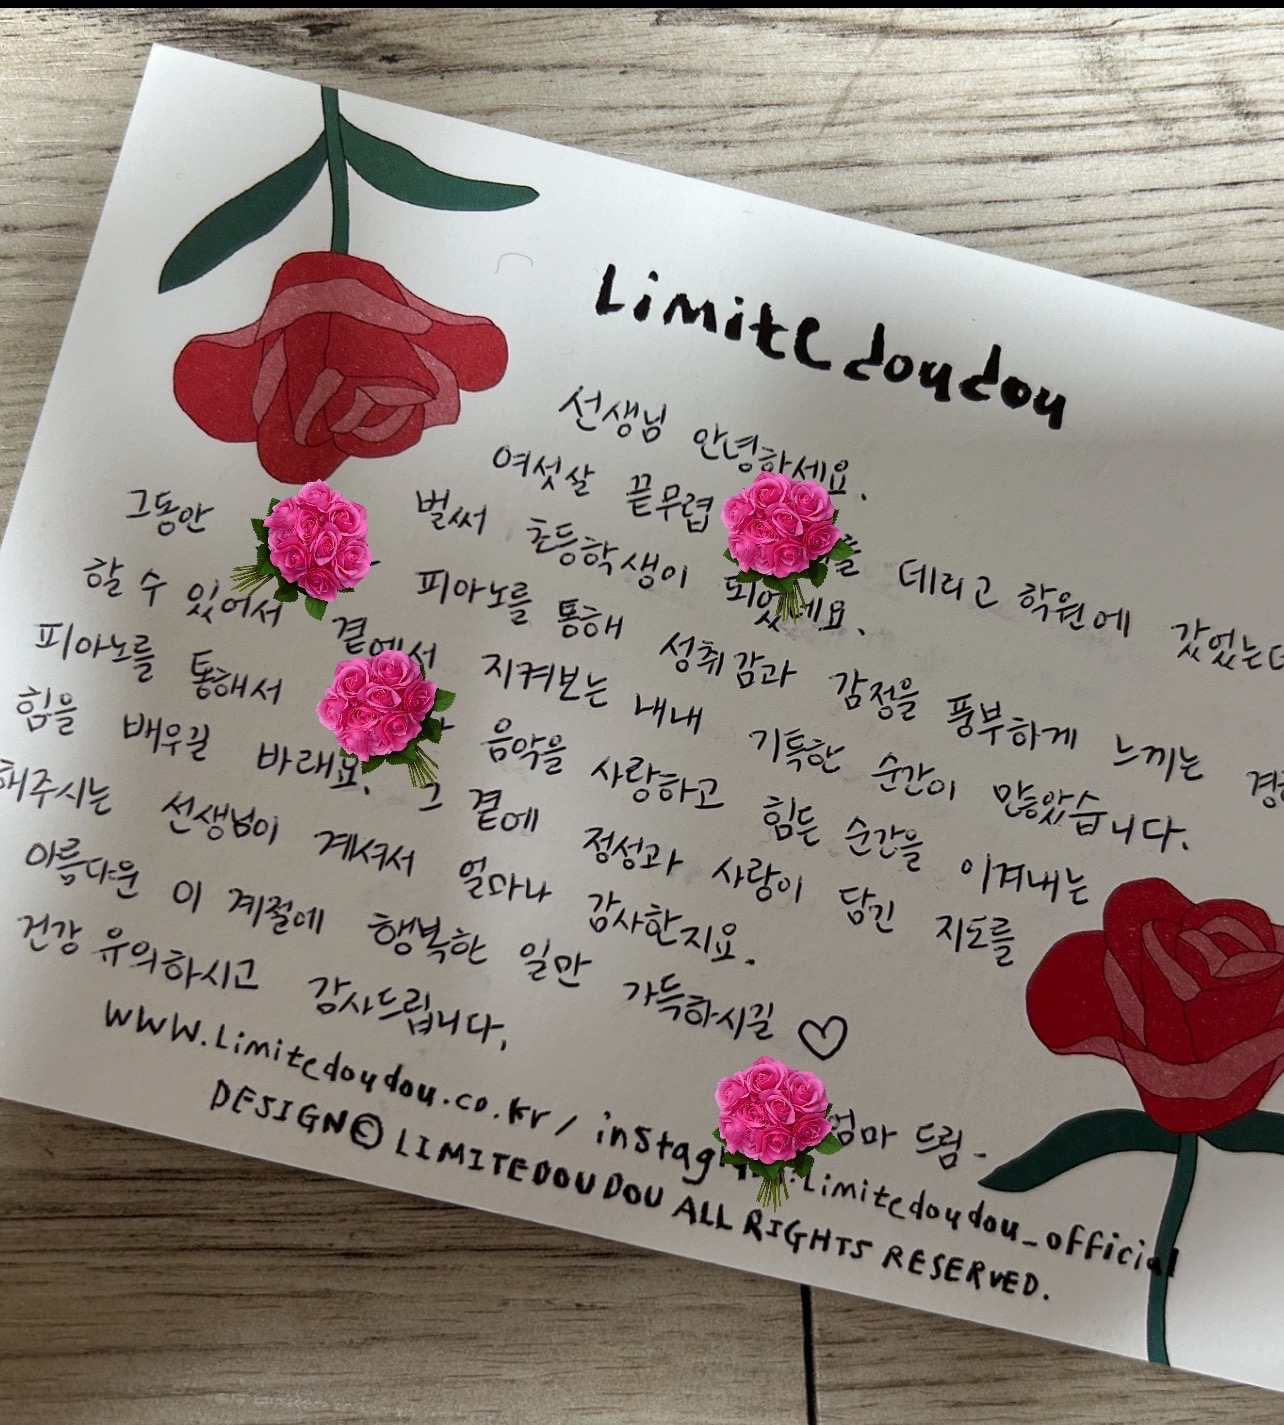 Limitedoudou
선생님 안녕하세요.
여섯살 끝무렵 를 데리고 학원에 갔었는데
벌써 초등학생이 되었네요.
그동안 피아노를 통해 성취감과 감정을 풍부하게 느끼는
할 수 있어서 곁에서 지켜보는 내내 기특한 순간이 많았습니다.
피아노를 통해서 음악을 사랑하고 힘든 순간을 이겨내는
힘을 배우길 바래요. 그 곁에 정성과 사랑이 담긴 지도를
해주시는 선생님이 계셔서 얼마나 감사한지요.
아름다운 이 계절에 행복한 일만 가득하시길 ♡
건강 유의하시고 감사드립니다.
엄마 드림-
WWW.Limitedoudou.co.kr / instag :Limitedoudou_official
DESIGN© LIMITEDOUDOU ALL RIGHTS RESERVED.